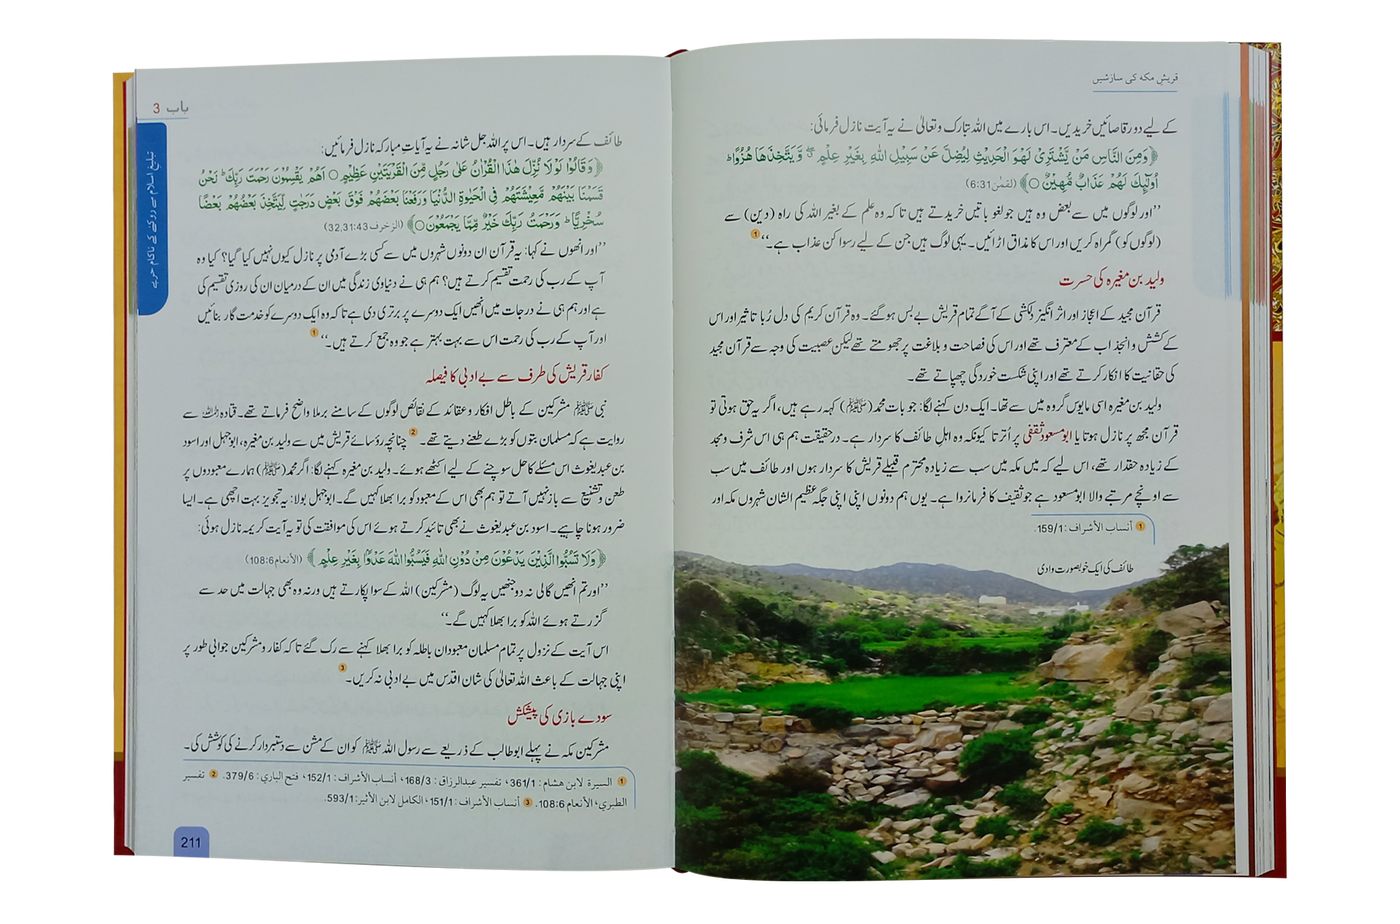 قریش مکہ کی سازشیں
کے لیے دو رقاصائیں خریدیں۔ اس بارے میں اللہ تبارک وتعالیٰ نے یہ آیت نازل فرمائی:
﴿وَمِنَ النَّاسِ مَنْ يَّشْتَرِيْ لَهْوَ الْحَدِيْثِ لِيُضِلَّ عَنْ سَبِيْلِ اللّٰهِ بِغَيْرِ عِلْمٍ ۖ وَّيَتَّخِذَهَا هُزُوًا ۭ
اُولٰٓئِكَ لَهُمْ عَذَابٌ مُّهِيْنٌ ○﴾ (لقمٰن 6:31)
’’اور لوگوں میں سے بعض وہ ہیں جو لغو باتیں خریدتے ہیں تاکہ وہ علم کے بغیر اللہ کی راہ (دین) سے
(لوگوں کو) گمراہ کریں اور اس کا مذاق اڑائیں۔ یہی لوگ ہیں جن کے لیے رسوا کن عذاب ہے۔‘‘ 1
ولید بن مغیرہ کی حسرت
قرآن مجید کے اعجاز اور اثر انگیز دلکشی کے آگے تمام قریش بے بس ہو گئے۔ وہ قرآن کریم کی دل رُبا تاثیر اور اس
کے کشش و انجذاب کے معترف تھے اور اس کی فصاحت و بلاغت پر جھومتے تھے لیکن عصبیت کی وجہ سے قرآن مجید
کی حقانیت کا انکار کرتے تھے اور اپنی شکست خوردگی چھپاتے تھے۔
ولید بن مغیرہ اسی مایوس گروہ میں سے تھا۔ ایک دن کہنے لگا: جو بات محمد (ﷺ) کہہ رہے ہیں، اگر یہ حق ہوتی تو
قرآن مجھ پر نازل ہوتا یا ابومسعود ثقفی پر اُترتا کیونکہ وہ اہل طائف کا سردار ہے۔ درحقیقت ہم ہی اس شرف و مجد
کے زیادہ حقدار تھے، اس لیے کہ میں مکہ میں سب سے زیادہ محترم قبیلے قریش کا سردار ہوں اور طائف میں سب
سے اونچے مرتبے والا ابومسعود ہے جو ثقیف کا فرمانروا ہے۔ یوں ہم دونوں اپنی اپنی جگہ عظیم الشان شہروں مکہ اور
1 أنساب الأشراف: 159/1.
طائف کی ایک خوبصورت وادی
باب 3
تبلیغ اسلام سے روکنے کے ناکام حربے
طائف کے سردار ہیں۔ اس پر اللہ جل شانہ نے یہ آیات مبارکہ نازل فرمائیں:
﴿وَقَالُوْا لَوْلَا نُزِّلَ هٰذَا الْقُرْاٰنُ عَلٰى رَجُلٍ مِّنَ الْقَرْيَتَيْنِ عَظِيْمٍ ○ اَهُمْ يَقْسِمُوْنَ رَحْمَتَ رَبِّكَ ۭ نَحْنُ
قَسَمْنَا بَيْنَهُمْ مَّعِيْشَتَهُمْ فِي الْحَيٰوةِ الدُّنْيَا وَرَفَعْنَا بَعْضَهُمْ فَوْقَ بَعْضٍ دَرَجٰتٍ لِّيَتَّخِذَ بَعْضُهُمْ بَعْضًا
سُخْرِيًّا ۭ وَرَحْمَتُ رَبِّكَ خَيْرٌ مِّمَّا يَجْمَعُوْنَ ○﴾ (الزخرف 32,31:43)
’’اور انھوں نے کہا: یہ قرآن ان دونوں شہروں میں سے کسی بڑے آدمی پر نازل کیوں نہیں کیا گیا؟ کیا وہ
آپ کے رب کی رحمت تقسیم کرتے ہیں؟ ہم ہی نے دنیاوی زندگی میں ان کے درمیان ان کی روزی تقسیم کی
ہے اور ہم ہی نے درجات میں انھیں ایک دوسرے پر برتری دی ہے تاکہ وہ ایک دوسرے کو خدمت گار بنائیں
اور آپ کے رب کی رحمت اس سے بہت بہتر ہے جو وہ جمع کرتے ہیں۔‘‘ 1
کفار قریش کی طرف سے بے ادبی کا فیصلہ
نبی ﷺ مشرکین کے باطل افکار و عقائد کے نقائص لوگوں کے سامنے برملا واضح فرماتے تھے۔ قتادہ سے
روایت ہے کہ مسلمان بتوں کو بڑے طعنے دیتے تھے۔ 2 چنانچہ رؤسائے قریش میں سے ولید بن مغیرہ، ابوجہل اور اسود
بن عبد یغوث اس مسئلے کا حل سوچنے کے لیے اکٹھے ہوئے۔ ولید بن مغیرہ کہنے لگا: اگر محمد (ﷺ) ہمارے معبودوں پر
طعن و تشنیع سے باز نہیں آتے تو ہم بھی اس کے معبود کو برا بھلا کہیں گے۔ ابوجہل بولا: یہ تجویز بہت اچھی ہے۔ ایسا
ضرور ہونا چاہیے۔ اسود بن عبد یغوث نے بھی تائید کرتے ہوئے اس کی موافقت کی تو یہ آیت کریمہ نازل ہوئی:
﴿وَلَا تَسُبُّوا الَّذِيْنَ يَدْعُوْنَ مِنْ دُوْنِ اللّٰهِ فَيَسُبُّوا اللّٰهَ عَدْوًۢا بِغَيْرِ عِلْمٍ﴾ (الأنعام 108:6)
’’اور تم انھیں گالی نہ دو جنھیں یہ لوگ (مشرکین) اللہ کے سوا پکارتے ہیں ورنہ وہ بھی جہالت میں حد سے
گزرتے ہوئے اللہ کو برا بھلا کہیں گے۔‘‘
اس آیت کے نزول پر تمام مسلمان معبودان باطلہ کو برا بھلا کہنے سے رک گئے تاکہ کفار و مشرکین جوابی طور پر
اپنی جہالت کے باعث اللہ تعالیٰ کی شان اقدس میں بے ادبی نہ کریں۔ 3
سودے بازی کی پیشکش
مشرکین مکہ نے پہلے ابوطالب کے ذریعے سے رسول اللہ ﷺ کو ان کے مشن سے دستبردار کرنے کی کوشش کی۔
1 السيرة لابن هشام: 361/1، تفسير عبدالرزاق: 168/3، أنساب الأشراف: 152/1، فتح الباري: 379/6. 2 تفسير
الطبري، الأنعام 108:6. 3 أنساب الأشراف: 151/1، الكامل لابن الأثير: 593/1.
211